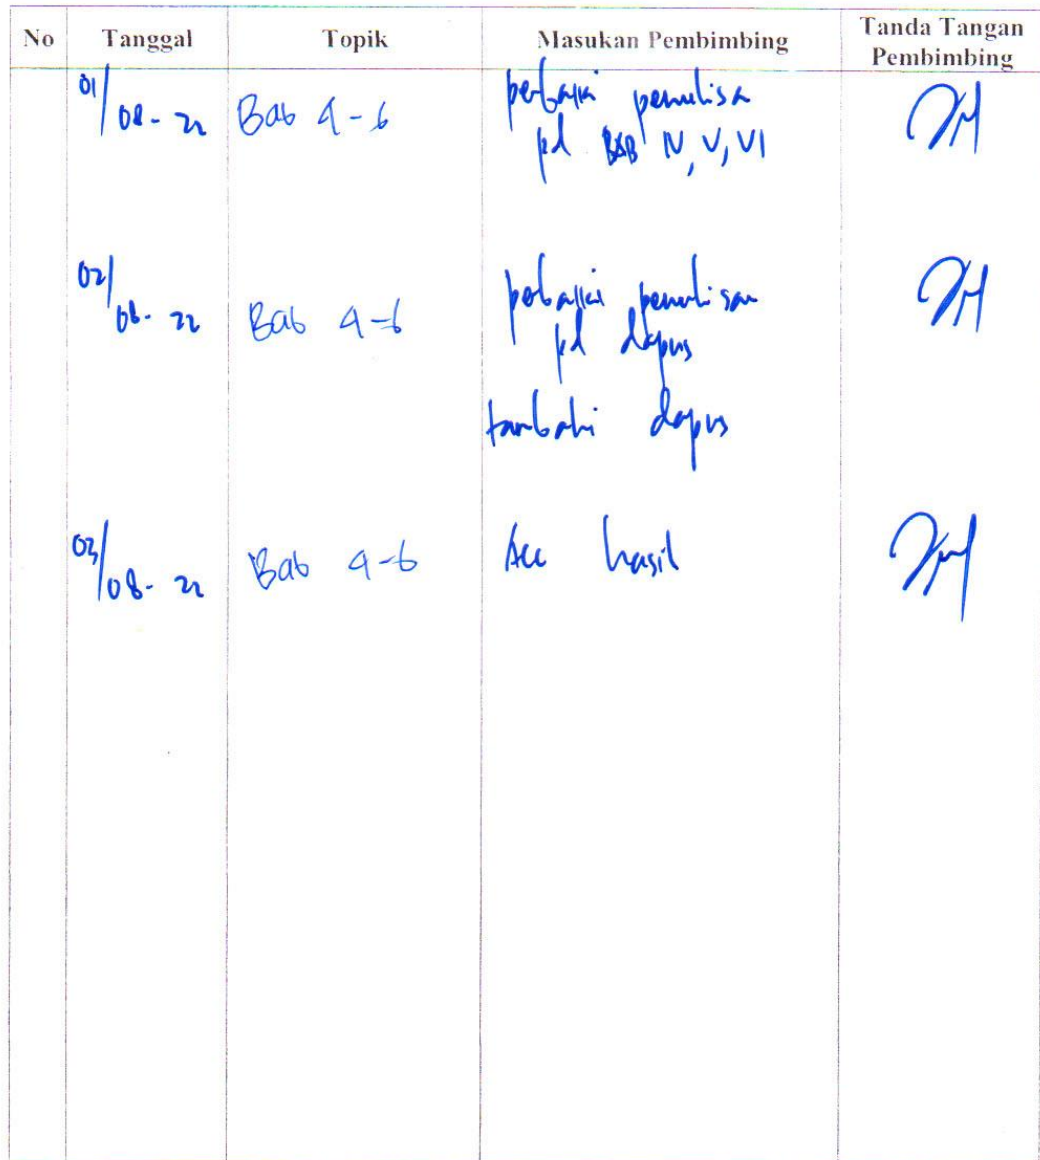 No Tanggal Topik Masukan Pembimbing Tanda Tangan Pembimbing
01/08-22 Bab 4-6 perbaiki penulisa
pd BAB IV, V, VI
02/08-22 Bab 4-6 perbaiki penulisan
pd dapus
tambahi dapus
03/08-22 Bab 4-6 Acc hasil